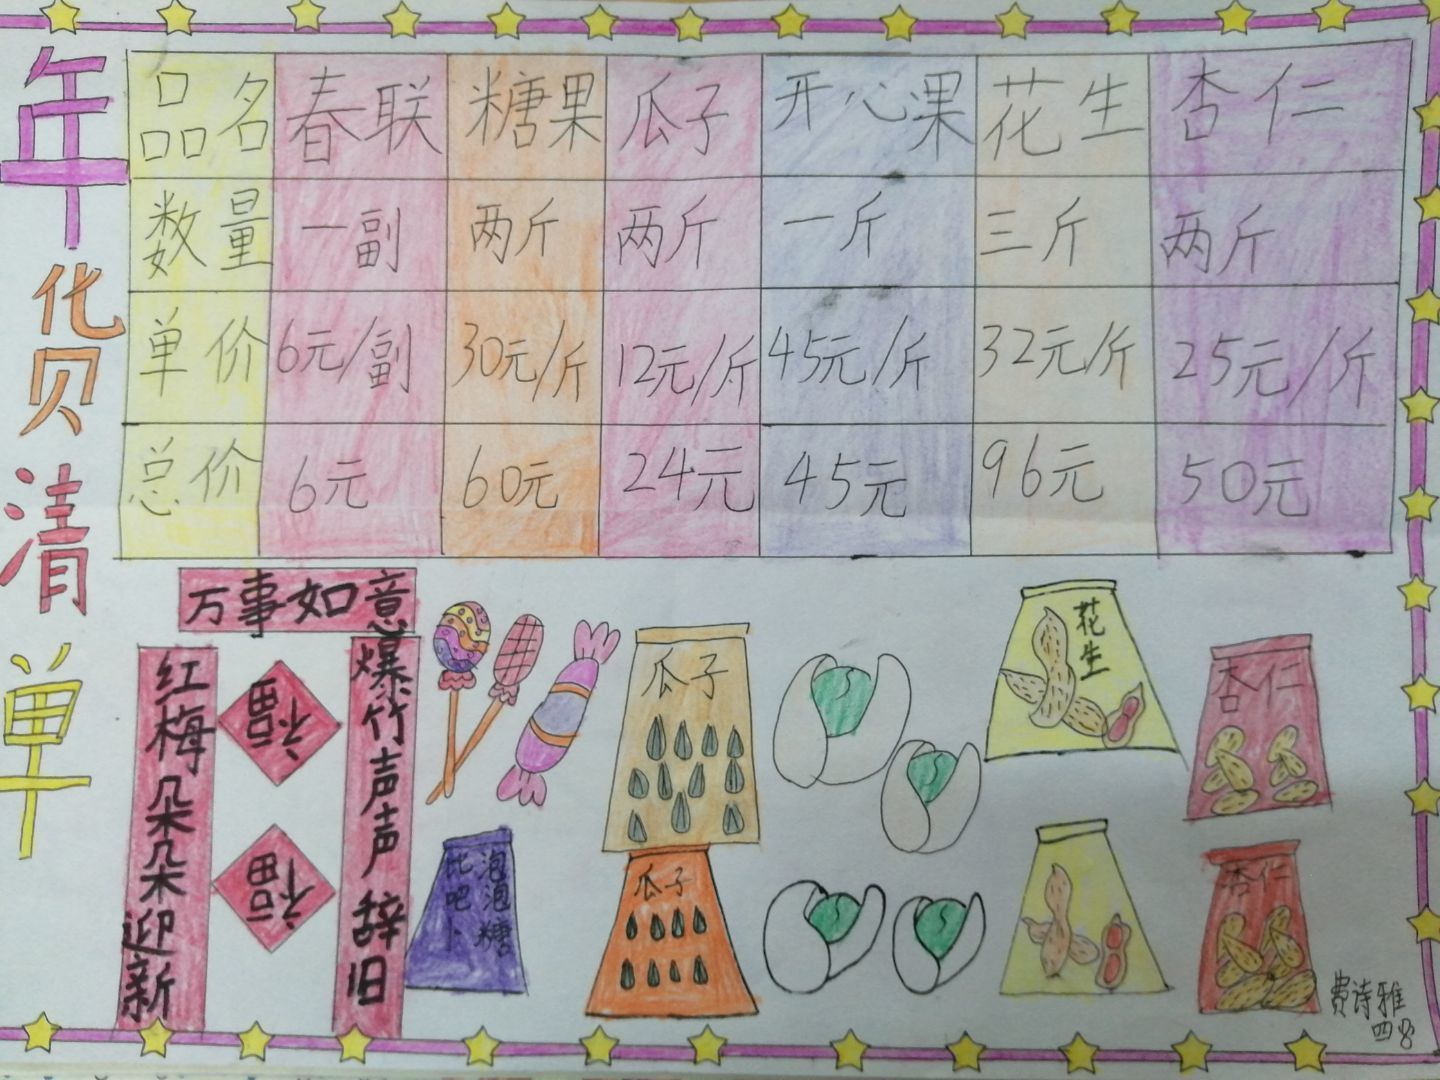 年货清单
品名 春联 糖果 瓜子 开心果 花生 杏仁
数量 一副 两斤 两斤 一斤 三斤 两斤
单价 6元/副 30元/斤 12元/斤 45元/斤 32元/斤 25元/斤
总价 6元 60元 24元 45元 96元 50元
万事如意
红梅朵朵迎新
爆竹声声辞旧
福
福
泡泡糖
比吧卜
瓜子
瓜子
花生
杏仁
杏仁
费诗雅
四8